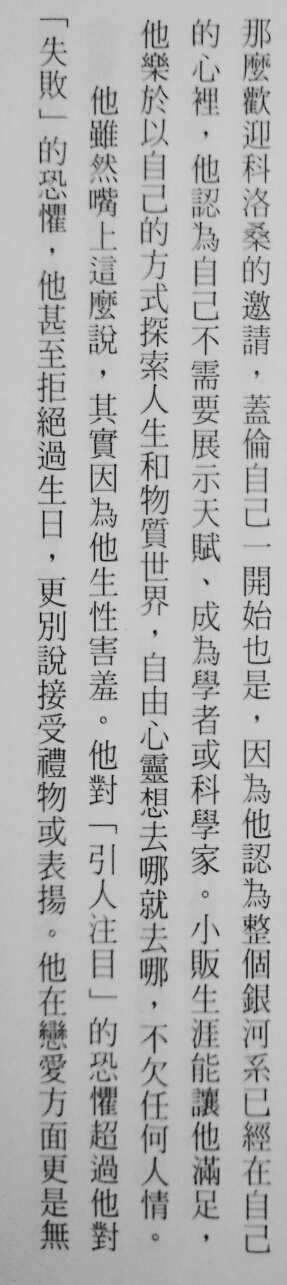 那麼歡迎科洛桑的邀請，蓋倫自己一開始也是，因為他認為整個銀河系已經在自己
的心裡，他認為自己不需要展示天賦、成為學者或科學家。小販生涯能讓他滿足，
他樂於以自己的方式探索人生和物質世界，自由心靈想去哪就去哪，不欠任何人情。
他雖然嘴上這麼說，其實因為他生性害羞。他對「引人注目」的恐懼超過他對
「失敗」的恐懼，他甚至拒絕過生日，更別說接受禮物或表揚。他在戀愛方面更是無